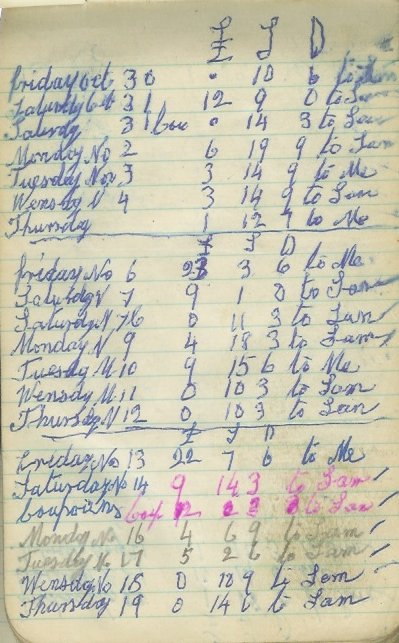 £ S D
Friday Oct 30 . 10 6 to Sam
Saturdy Oct 31 12 9 0 to Sam
Saurdy 31 bou . 14 3 to Sam
Monday No 2 6 19 9 to Sam
Tuesday Nov 3 3 14 9 to Me
Wensday N 4 3 14 9 to Sam
Thursday 1 12 9 to Me
£ S D
Friday No 6 23 3 6 to Me
Saturdy N 7 9 1 0 to Sam
Saturdy N 7 0 11 3 to Sam
Monday N 9 4 18 3 to Sam
Tuesday N 10 9 15 6 to Me
Wensdy N 11 0 10 3 to Sam
Thursday N 12 0 10 3 to Sam
£ S D
Friday No 13 22 7 6 to Me
Saturday No 14 9 14 3 to Sam
to Sam
Mondy No 16 4 6 9 to Sam
Tuesdy N. 17 5 2 6 to Sam
Wensdy No 18 0 18 9 to Sam
Thursday 19 0 14 6 to Sam